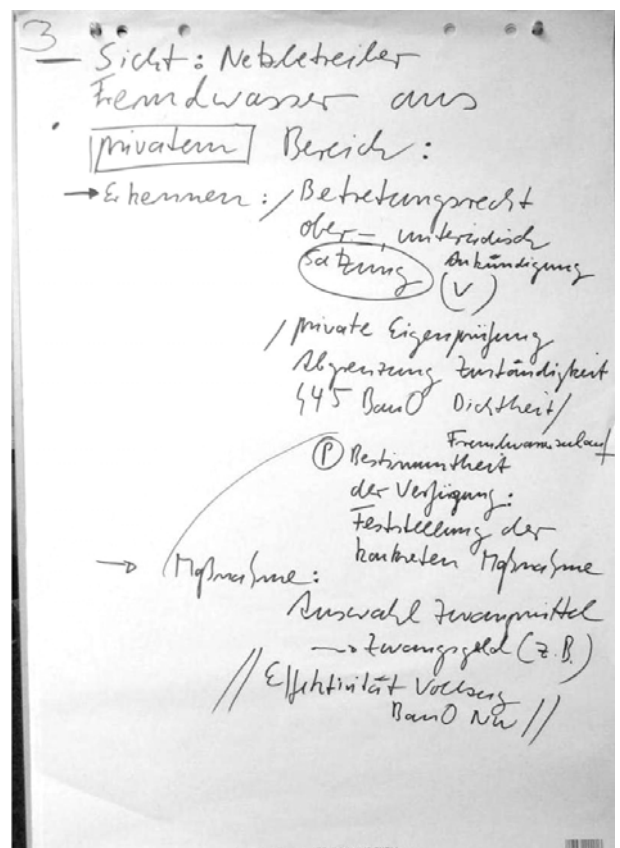 3
— Sicht: Netzbetreiber
Fremdwasser aus
privatem Bereich:
→ Erkennen: / Betretungsrecht
ober-, unterirdisch
Satzung Ankündigung
(V)
/ private Eigenprüfung
Abgrenzung Zuständigkeit
§45 BauO Dichtheit/
Fremdwasserzulauf
(P) Bestimmtheit
der Verfügung:
Feststellung der
konkreten Maßnahme
→ Maßnahme:
Auswahl Zwangmittel
→ Zwangsgeld (z.B.)
// Effektivität Vollzug
BauO NW //